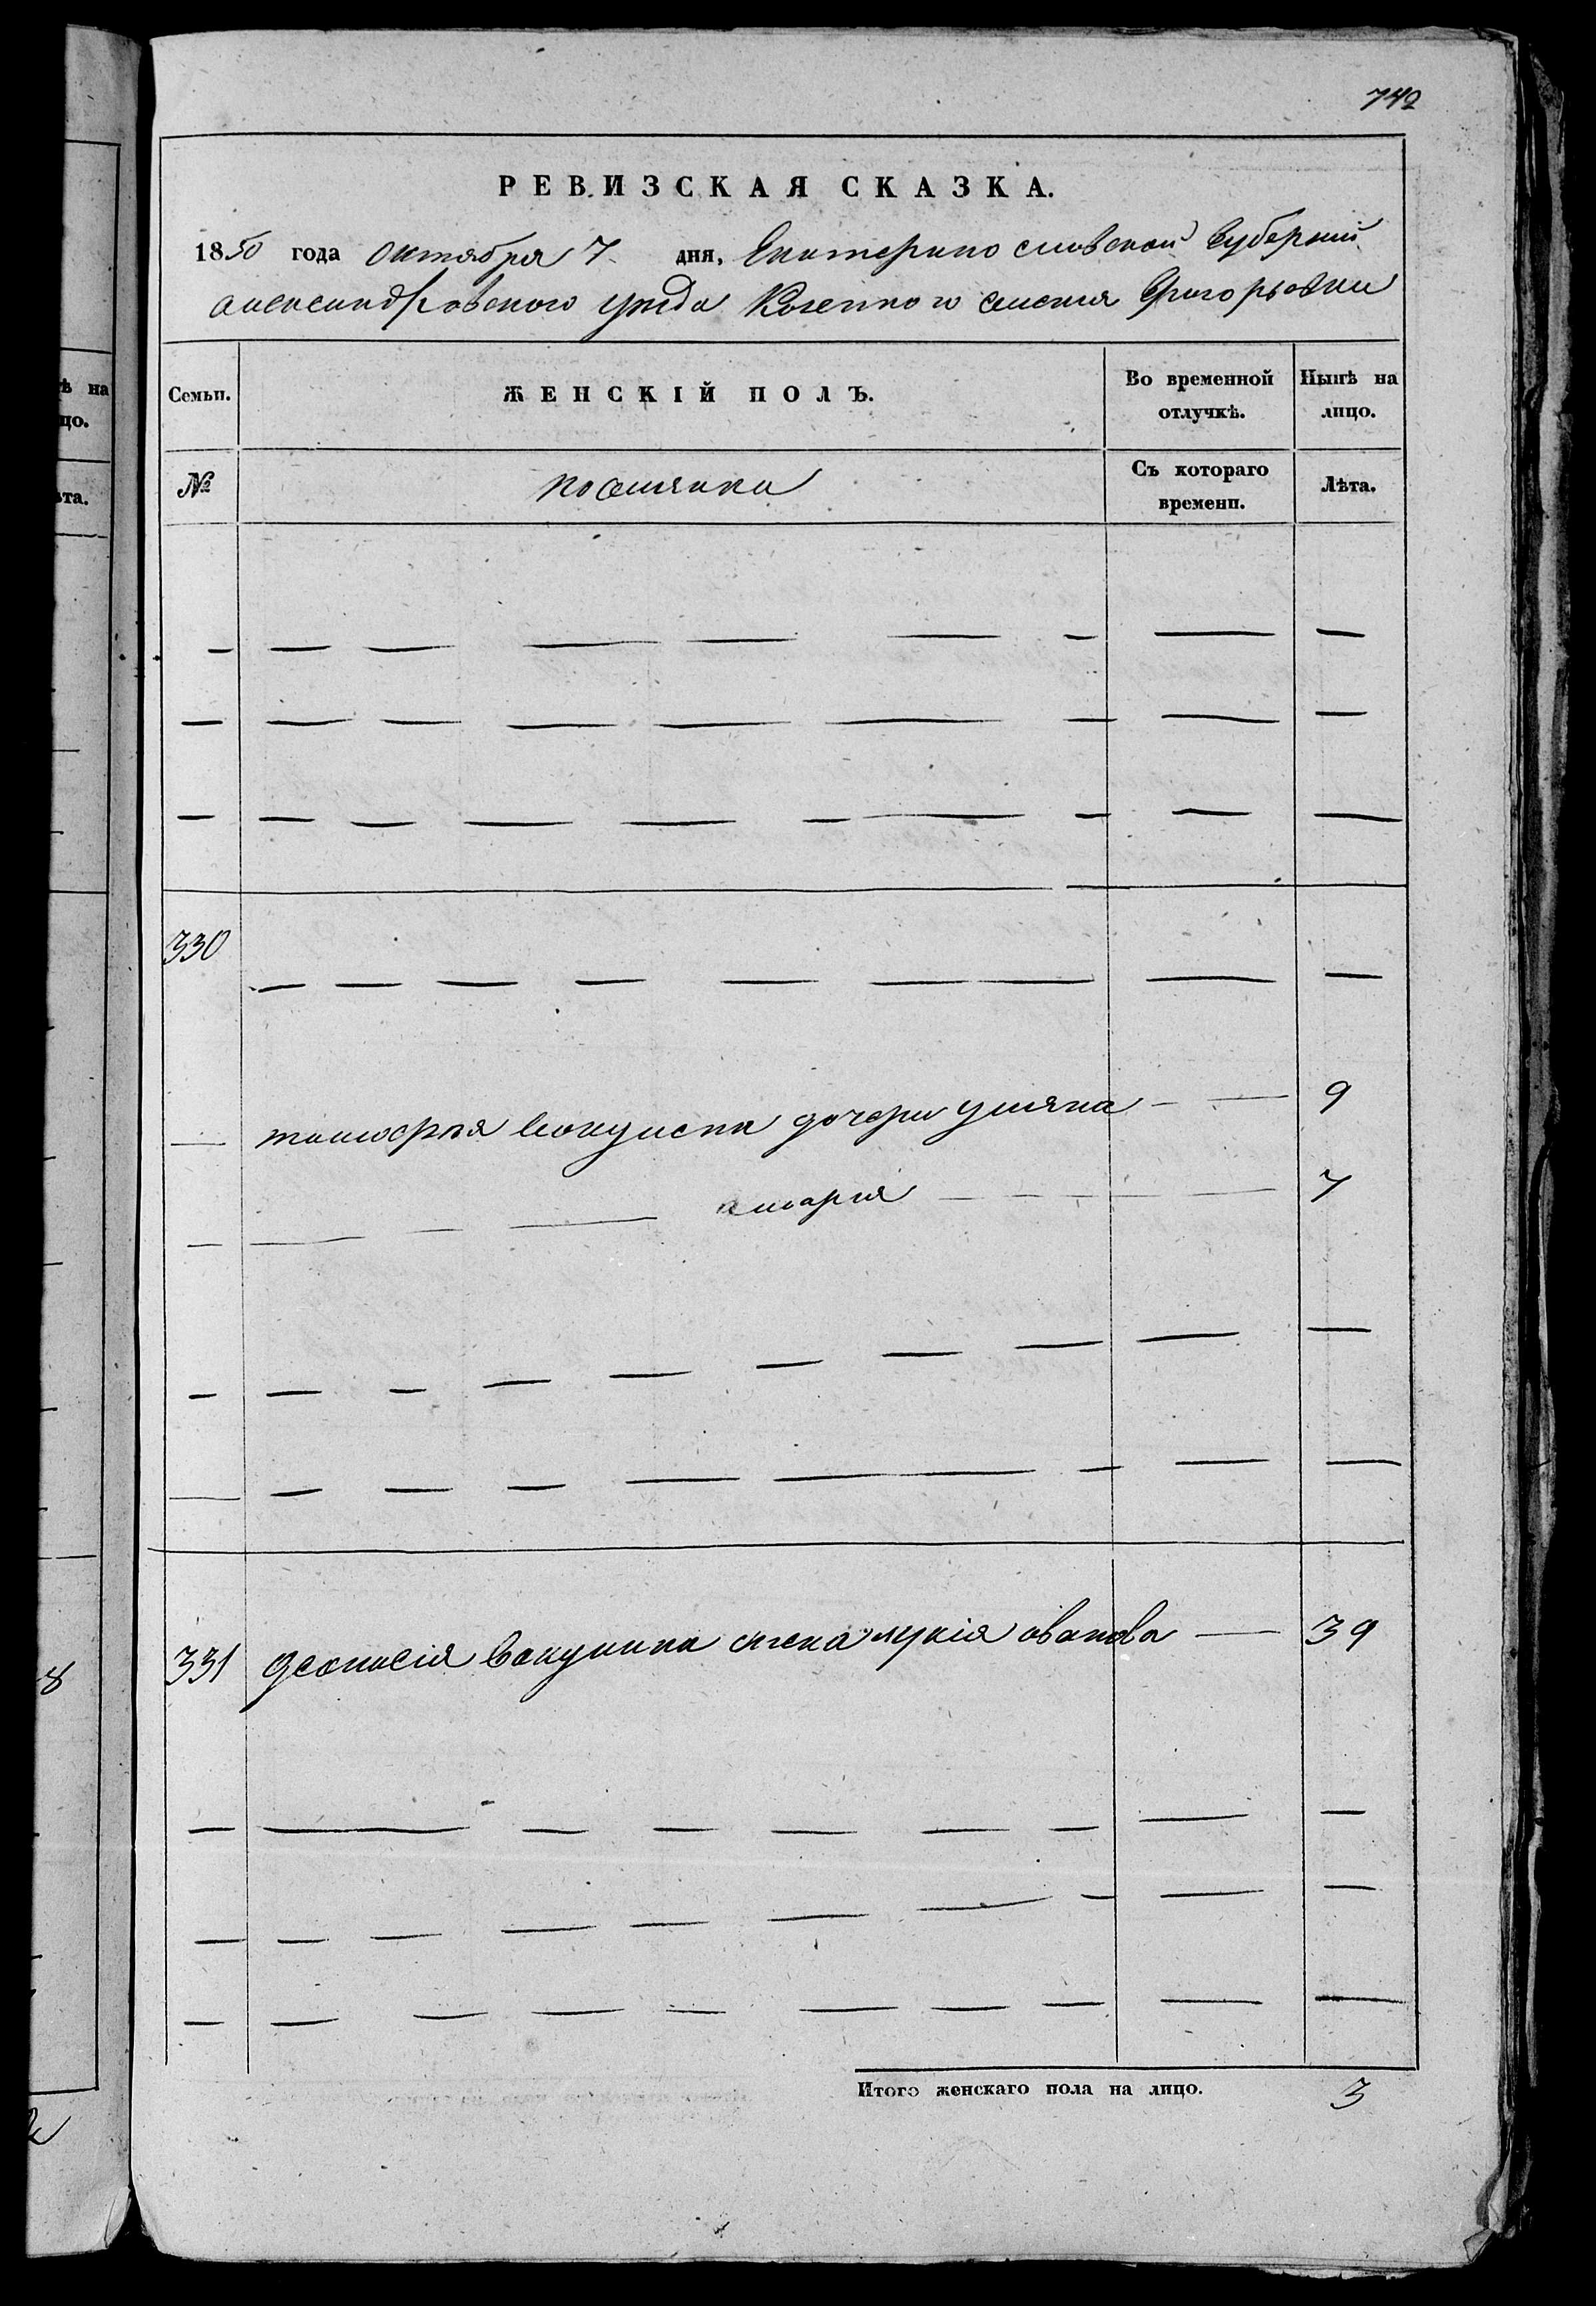 742
РЕВИЗСКАЯ СКАЗКА.
1850 года октября 7 дня, Екатеринославской Губернии
александровского уезда Козенного селения Григорьовки
ѣ на
цо.
ѣта.
Семьи.
ЖЕНСКІЙ ПОЛЪ.
Во временной отлучкѣ.
Нынѣ на лицо.
№
поселянки
Съ котораго времени.
Лѣта.
— — — — — — — — —
— — — — — — — — —
— — — — — — — — —
330 — — — — — — — — —
— дочери улияна — — 9
— — — — марія — — — — — 7
— — — — — — — — — —
— — — — — — — — —
331 жена лукія — 39
— — — — — — — — —
— — — — — — — — —
— — — — — — — — — —
Итого женскаго пола на лицо. 3
8